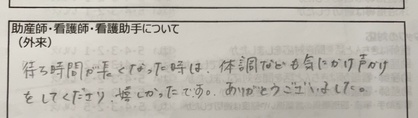 助産師・看護師・看護助手について
(外来)
待ち時間が長くなった時は、体調なども気にかけ声かけ
をしてくださり、嬉しかったです。ありがとうございました。